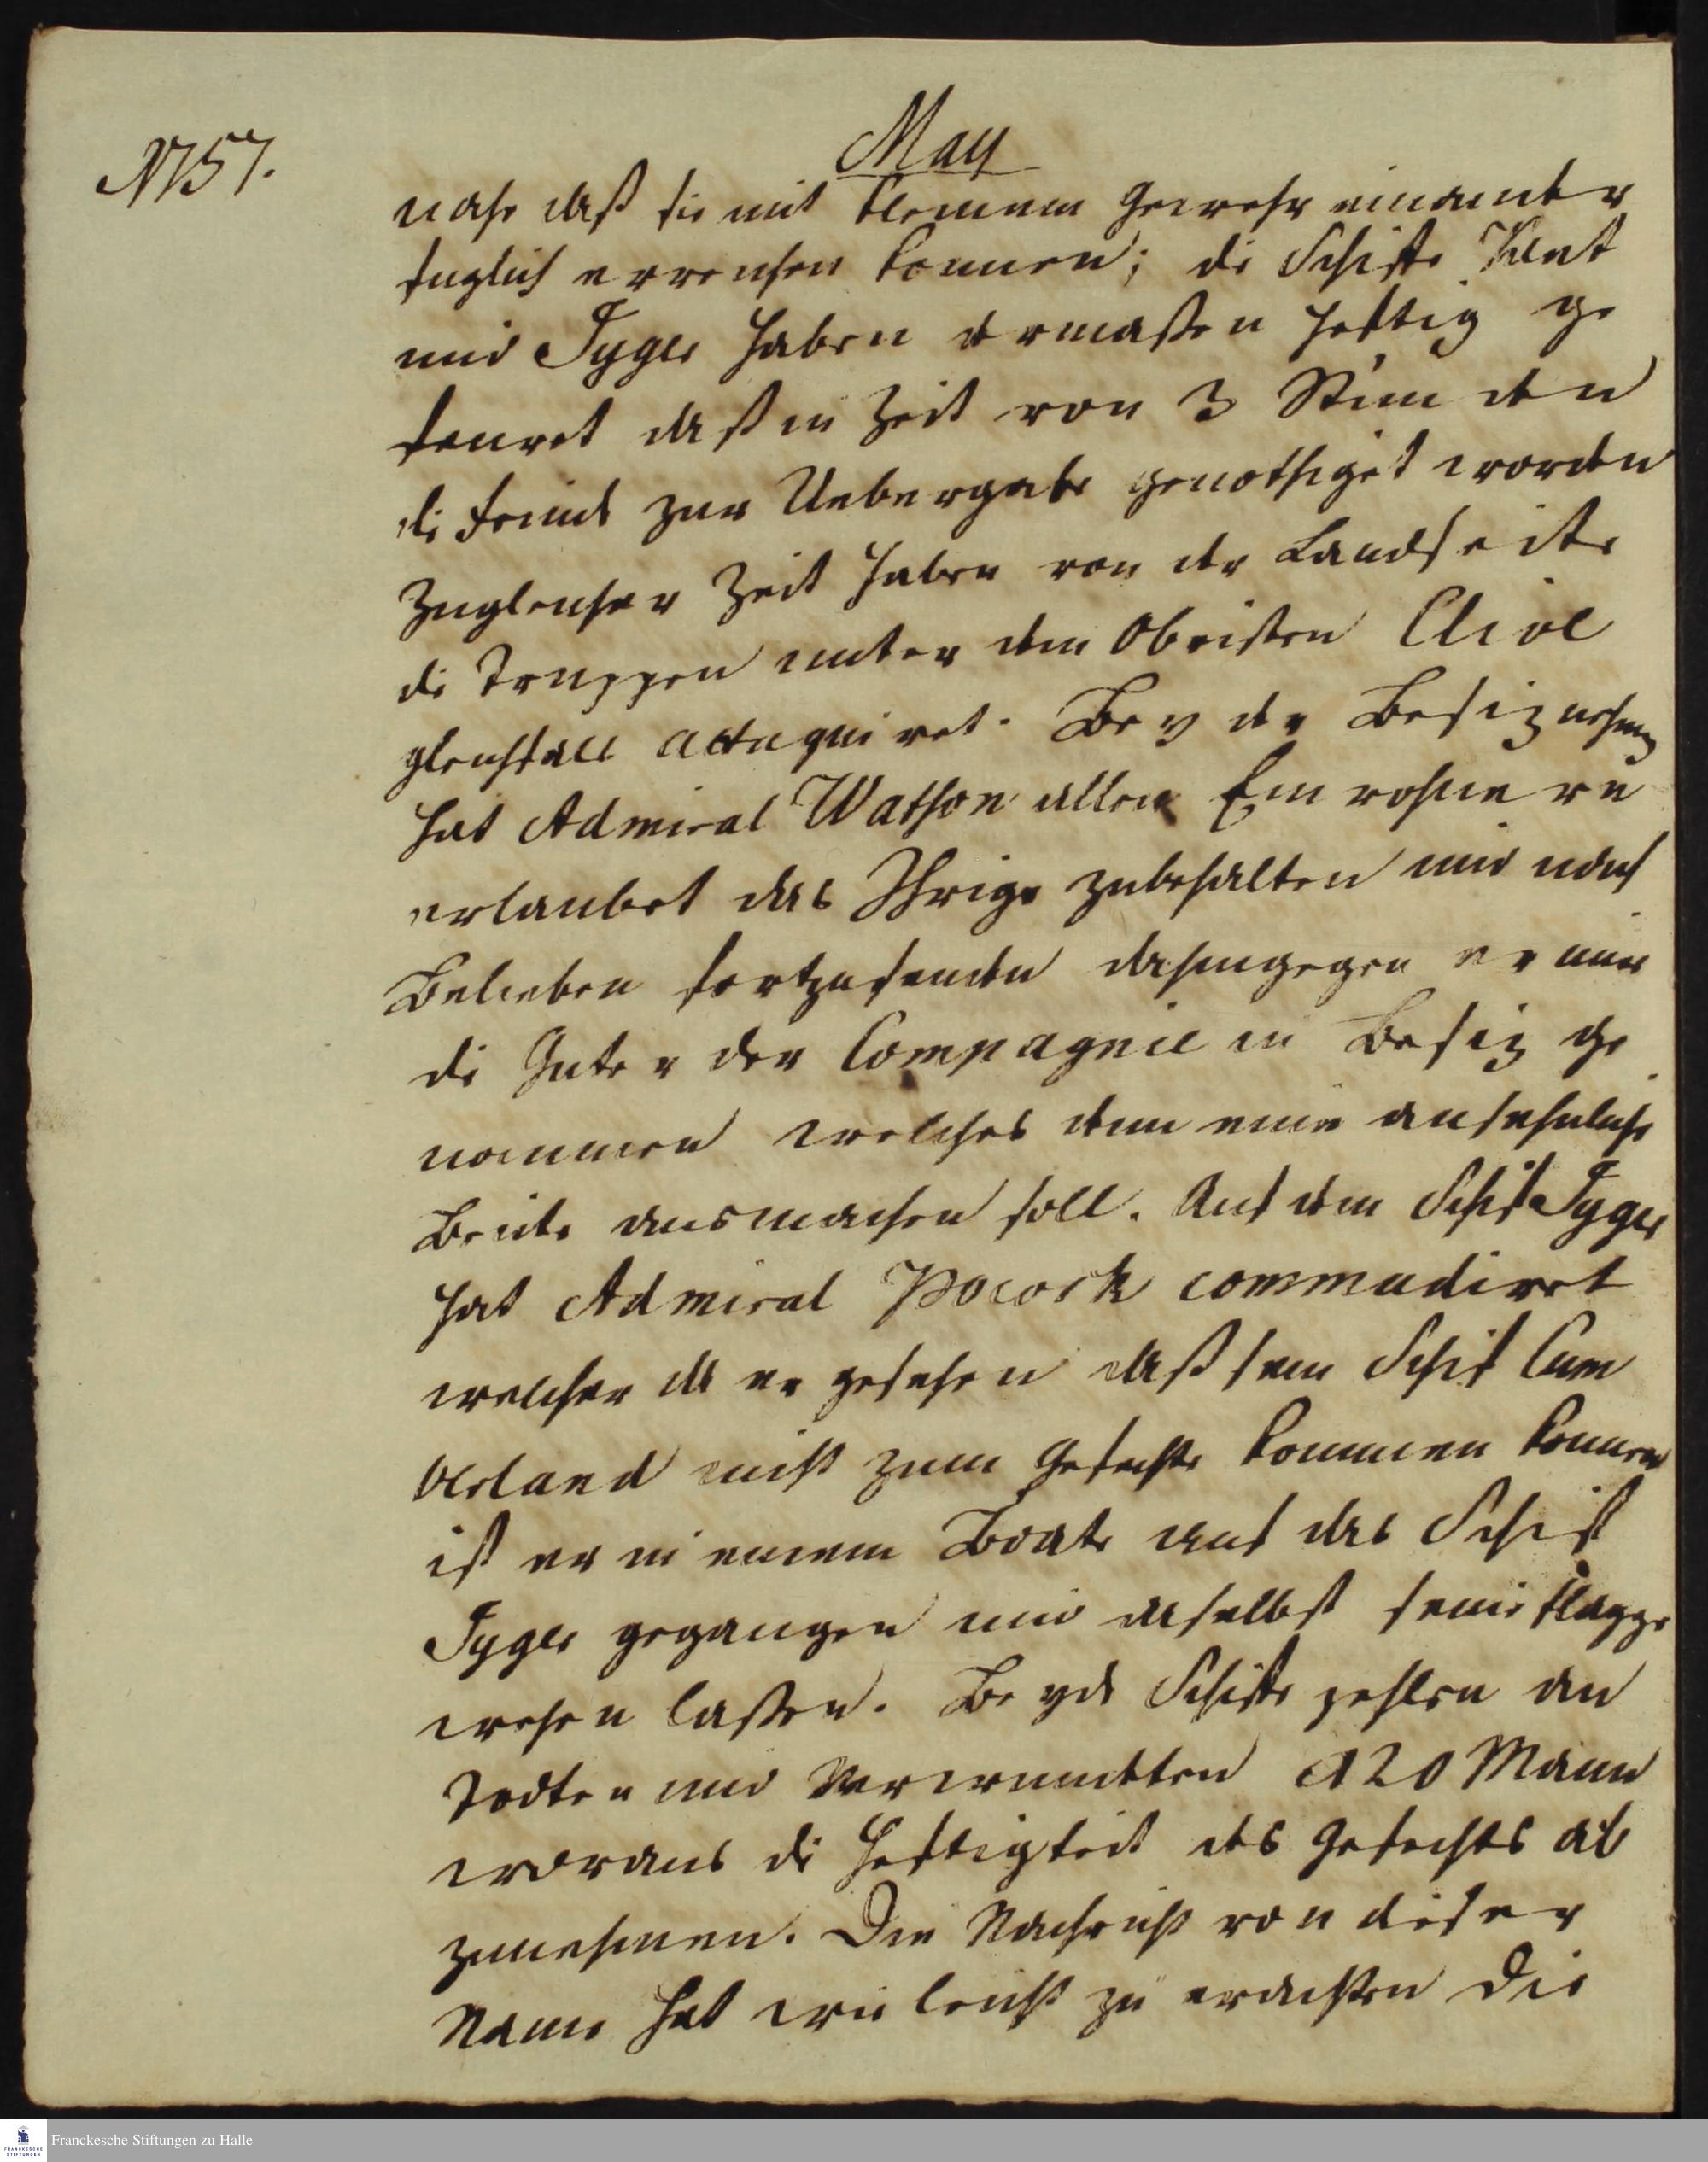 May
1757.
nahe daß sie mit kleinem Gewehr einander
füglich erreichen konnen; die Schiffe Kent
und Tyger haben dermaßen heftig ge
feuret daß in Zeit von 3 Stunden
die Feinde zur Uebergabe genothiget worden
Zugleicher Zeit haben von der Landseite
die Truppen unter dem Obristen Clive
gleichfals attaquiret. Bey der Besiznehmung
hat Admiral Watson allen Einwohneren
erlaubet das Ihrige zubehalten und nach
Belieben fortzusenden dahingegen er nur
die Güter der Compagnie in Besiz ge
nommen welches denn eine ansehnliche
Beute ausmachen soll. Auf dem Schif Tyger
hat Admiral Pocock commadiret
welcher da er gesehen daß sein Schif Cum
berland nicht zum Gefechte kommen konnen
ist er in einem Boate auf das Schif
Tyger gegangen und daselbst seine Flagge
wehen laßen. Beyde Schiffe zehlen an
Todten und Verwundten 120 Mann
woraus die Heftigkeit des Gefechts ab
zunehmen. Die Nachricht von dieser
hat wie leicht zu erachten die
Franckesche Stiftungen zu Halle
FRANCKESCHE STIFTUNGEN